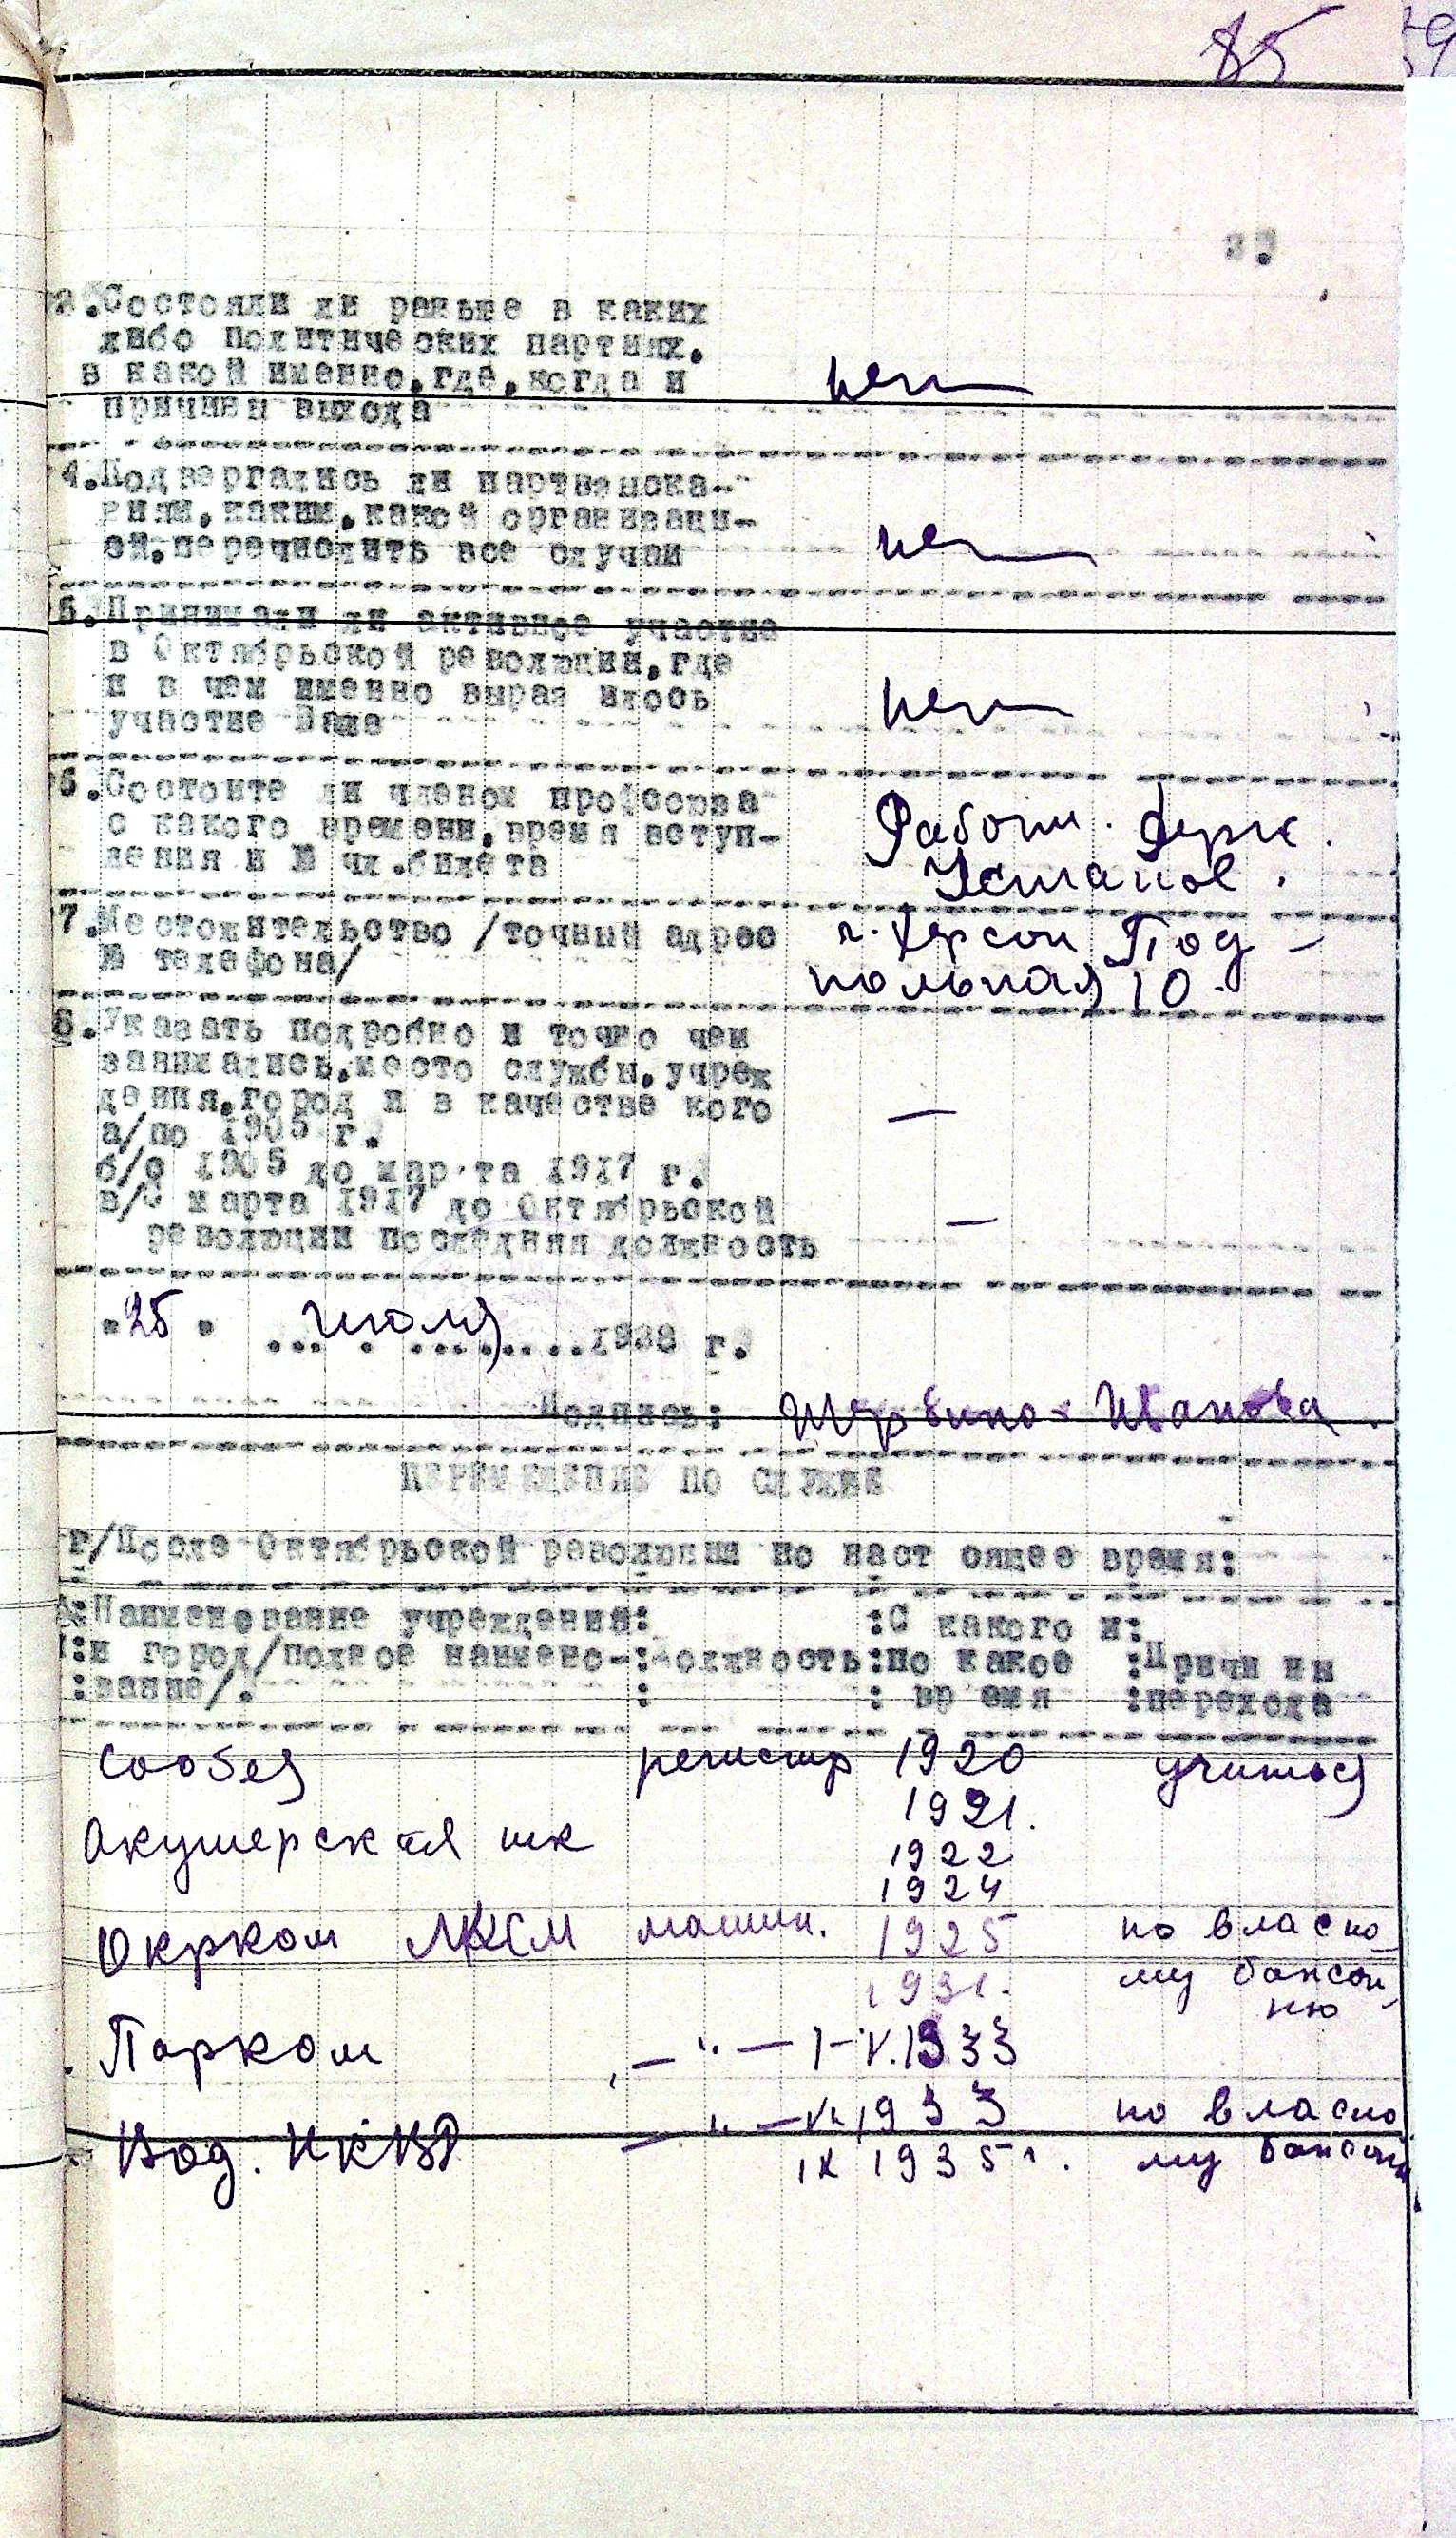 85
3.Состояли ли раньше в каких
либо политических партиях,
в какой именно,где,когда и
причины выхода
нет
4.Подвергались ли партвзыска-
ниям,каким,какой организаци-
ей,перечислить все случаи
нет
5.Принимали ли активное участие
в Октябрьской революции,где
и в чем именно выразилось
участие Ваше
нет
6.Состоите ли членом профсоюза
с какого времени,время вступ-
ления и № чл.билета
Работн. держ.
Установ.
7.Местожительство /точный адрес
№ телефона/
г. Херсон Под-
польная 10.
8.Указать подробно и точно чем
занимались,место службы,учреж
дения,город и в качестве кого
а/по 1905 г.
—
б/с 1905 до марта 1917 г.
в/С марта 1917 до Октябрьской
революции последняя должность
—
"25" июля 1938 г.
Подпись: Щербино-Иванова
ПЕРЕМЕЩЕНИЕ ПО СЛУЖБЕ
г/После Октябрьской революции по настоящее время:
:Наименование учреждений: :С какого и:
:и город/полное наимено-:Должность:по какое :Причины
:вание/. : : время :перехода
Собез регистр 1920 учиться
1921.
Акушерская шк 1922
1924
Окрком ЛКСМ машин. 1925 по власно
1931. му бажан
ню
Парком — " — I-V.1933
Вод. НКВД — " — VI 1933 по власно
IX 1935 г. му бажанн